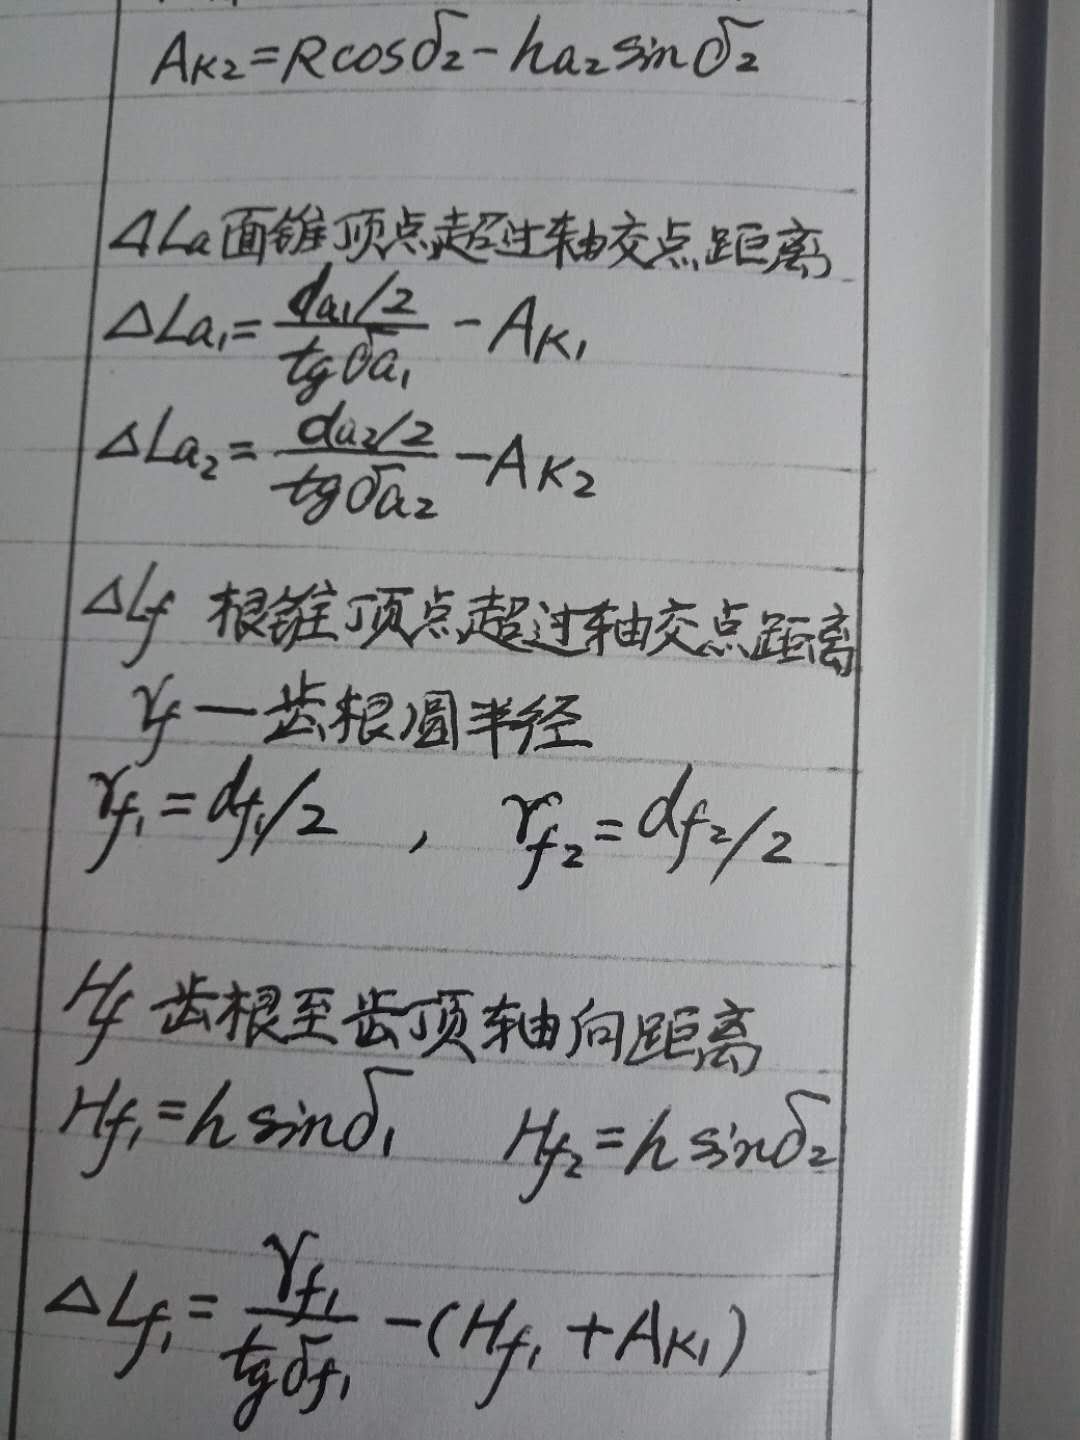 A_{K2}=Rcosδ₂-ha₂sinδ₂
ΔLa面锥顶点超过轴交点距离
ΔLa₁=\frac{da₁/2}{tgδa₁}-A_{K1}
ΔLa₂=\frac{da₂/2}{tgδa₂}-A_{K2}
ΔLf 根锥顶点超过轴交点距离
rf—齿根圆半径
r_{f1}=d_{f1}/2 , r_{f2}=d_{f2}/2
Hf 齿根至齿顶轴向距离
H_{f1}=h sinδ₁ H_{f2}=h sinδ₂
ΔL_{f1}=\frac{r_{f1}}{tgδ_{f1}}-(H_{f1}+A_{K1})